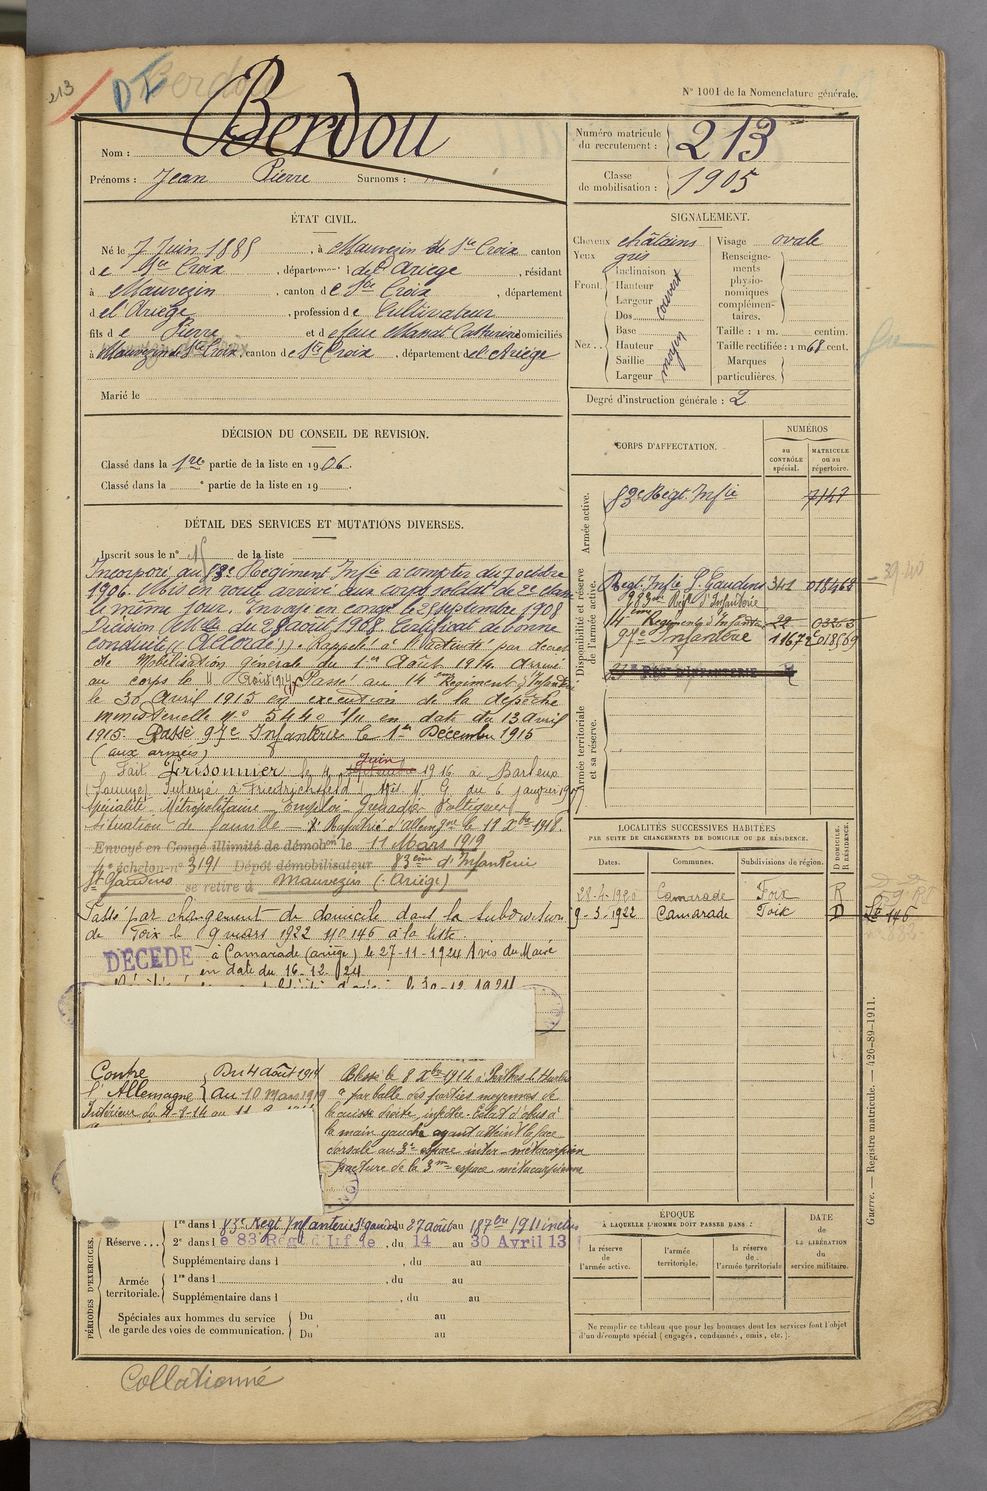 213
DC Berdou
N° 1001 de la Nomenclature générale.
Nom : Berdou
Prénoms : Jean Pierre Surnoms :
Numéro matricule du recrutement : 213
Classe de mobilisation : 1905
ÉTAT CIVIL.
Né le 7 Juin 1885, à Mauvezin de Ste Croix canton
de Ste Croix, département de l'Ariège, résidant
à Mauvezin, canton de Ste Croix, département
d el'Ariège, profession de Cultivateur
fils de Pierre et de feue Manat Catherine domiciliés
à Mauvezin de Ste Croix, canton de Ste Croix, département de l'Ariège
Marié le
SIGNALEMENT.
Cheveux châtains
Yeux gris
Front Inclinaison
Hauteur
Largeur
couvert
Nez Dos
Base
Hauteur
Saillie
Largeur
moyen
Visage ovale
Renseignements physionomiques complémentaires.
Taille : 1 m. centim.
Taille rectifiée : 1 m 68 cent.
Marques particulières.
Degré d'instruction générale : 2
DÉCISION DU CONSEIL DE REVISION.
Classé dans la 1re partie de la liste en 1906.
Classé dans la e partie de la liste en 19 .
CORPS D'AFFECTATION.
NUMÉROS
au CONTRÔLE spécial.
MATRICULE ou au répertoire.
Armée active.
83e Régt Infie 7147
Disponibilité et réserve de l'armée active.
Regt Infie St Gaudens 341 018468
83me Regt d'Infanterie
14ème Régiment d'Infanterie 22
97e Infanterie 11672 018569
REGT D'INFANTERIE
Armée territoriale et sa réserve.
DÉTAIL DES SERVICES ET MUTATIONS DIVERSES.
Inscrit sous le n° 15 de la liste
Incorporé au 83e Régiment Infie a compter du 7 octobre
1906. Mis en route arrivé aux corps soldat de 2e classe
le même jour. Envoyé en congé le 28 septembre 1908
Décision Mlle du 28 août 1908. Certificat de bonne
conduite "Accordé". Rappelé à l'activité par décret
de Mobilisation générale du 1er Août 1914. Arrivé
au corps le 11 Août 1914. Passé au 14ème Régiment d'Infanterie
le 30 Avril 1915 en exécution de la dépêche
ministérielle N° 5440 1/11 en date du 13 avril
1915. Passé 97e Infanterie le 1er Décembre 1915
(aux armées)
Fait Prisonnier le 4 Juin 1916 à Barleux
(Somme) Interné à Friedrichsfeld. Avis M. G. du 6 janvier 1917
Spécialité Métropolitaine Emploi Grenadier Voltigeur
Situation de famille Rapatrié d'Allemagne le 18 Xbre 1918.
Envoyé en Congé illimité de démobon le 11 Mars 1919
4e échelon n° 3191 Dépôt démobilisateur 83ème d'Infanterie
St Gaudens se retire à Mauvezin (Ariège)
Passé par changement de domicile dans la subdivision
de Foix le 9 mars 1922 N° 146 à la liste.
DÉCÉDÉ à Camarade (Ariège) le 27-11-1924 Avis du Maire
en date du 16-12-24
LOCALITÉS SUCCESSIVES HABITÉES
PAR SUITE DE CHANGEMENTS DE DOMICILE OU DE RÉSIDENCE.
Dates. Communes. Subdivisions de région. D DOMICILE. R RÉSIDENCE.
28-4-1920 Camarade Foix R
9-3-1922 Camarade Foix D
Lte 146
Contre l'Allemagne
Du 4 août 1914
au 10 Mars 1919
Intérieur du 4-8-14 au
Blessé le 8 Xbre 1914 à Perthes le Hurlus
par balle des parties moyennes de
la cuisse droite, infectée. Eclat d'obus à
la main gauche ayant atteint la face
dorsale au 3e espace inter-métacarpien
fracture de la 3me espace métacarpienne
PÉRIODES D'EXERCICES.
Réserve...
1re dans l 83e Regt Infanterie St gaudens du 27 août au 18 7bre 1911 inclus
2e dans l e 83 Régt d'Infie, du 14 au 30 Avril 13
Supplémentaire dans l , du au
Armée territoriale.
1re dans l , du au
Supplémentaire dans l , du au
Spéciales aux hommes du service de garde des voies de communication.
Du au
Du au
ÉPOQUE
À LAQUELLE L'HOMME DOIT PASSER DANS :
la réserve de l'armée active.
l'armée territoriale.
la réserve de l'armée territoriale
DATE DE LA LIBÉRATION du service militaire.
Ne remplir ce tableau que pour les hommes dont les services font l'objet
d'un décompte spécial (engagés, condamnés, omis, etc.).
Guerre. — Registre matricule. — 426-89-1911.
Collationné